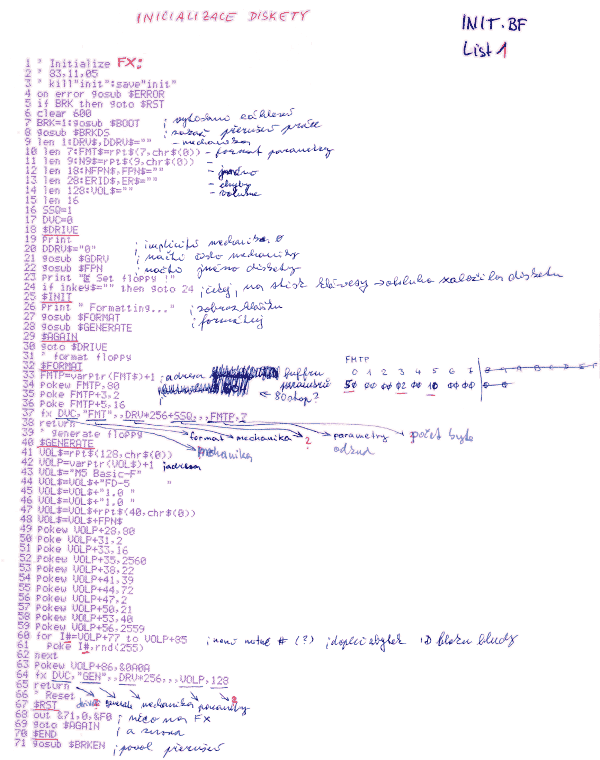 INICIALIZACE DISKETY
INIT.BF
List 1
1 ' Initialize FX:
2 ' 83,11,05
3 ' kill"init":save"init"
4 on error gosub $ERROR
5 if BRK then goto $RST
6 clear 600
7 BRK=1:gosub $BOOT
8 gosub $BRKDS ; zakaž přerušení práce
9 len 1:DRV$,DDRV$="" - mechanika
10 len 7:FMT$=rpt$(7,chr$(0)) - format parametry
11 len 9:N9$=rpt$(9,chr$(0)) -
12 len 18:NFPN$,FPN$="" - jméno
13 len 28:ERID$,ER$="" - chyby
14 len 128:VOL$="" - volume
15 len 16
16 SSQ=1
17 DVC=0
18 $DRIVE
19 Print
20 DDRV$="0" ; implicitní mechanika 0
21 gosub $GDRV ; načti číslo mechaniky
22 gosub $FPN ; načti jméno diskety
23 Print " Set floppy !"
24 if inkey$="" then goto 24 ; čekej, na stisk klávesy → obsluha založila disketu
25 $INIT
26 Print " Formatting..." ; zobraz hlášku
27 gosub $FORMAT ; formátuj
28 gosub $GENERATE
29 $AGAIN
30 goto $DRIVE
31 ' format floppy
FMTP
32 $FORMAT
0 1 2 3 4 5 6 7 8 9 A B C D E F
33 FMTP=varptr(FMT$)+1 ; adresa bufferu
34 pokew FMTP,80 parametrů
50 00 00 02 00 10 00 00 0 0
35 Poke FMTP+3,2 80 stop?
36 Poke FMTP+5,16
37 fx DVC,"FMT",,DRV*256+SSQ,,,FMTP,7
38 return
39 ' generate floppy format mechanika ? parametry počet byte
40 $GENERATE mechanika odkud
41 VOL$=rpt$(128,chr$(0))
42 VOLP=varptr(VOL$)+1 ; adresa
43 VOL$="M5 Basic-F"
44 VOL$=VOL$+"FD-5 "
45 VOL$=VOL$+"1.0 "
46 VOL$=VOL$+"1.0 "
47 VOL$=VOL$+rpt$(40,chr$(0))
48 VOL$=VOL$+FPN$
49 Pokew VOLP+28,80
50 Poke VOLP+31,2
51 Poke VOLP+33,16
52 Pokew VOLP+35,2560
53 Pokew VOLP+38,22
54 Pokew VOLP+41,39
55 Pokew VOLP+44,72
56 Pokew VOLP+47,2
57 Pokew VOLP+50,21
58 Pokew VOLP+53,40
59 Pokew VOLP+56,2559
60 for I#=VOLP+77 to VOLP+85
61 Poke I#,rnd(255)
62 next
63 Pokew VOLP+86,&0A0A
64 fx DVC,"GEN",,DRV*256,,,VOLP,128
65 return
66 ' Reset
67 $RST mechanika parametry
68 out &71,0,&F0 ; něco na FX
69 goto $AGAIN ; a znova
70 $END
71 gosub $BRKEN ; povol přerušení